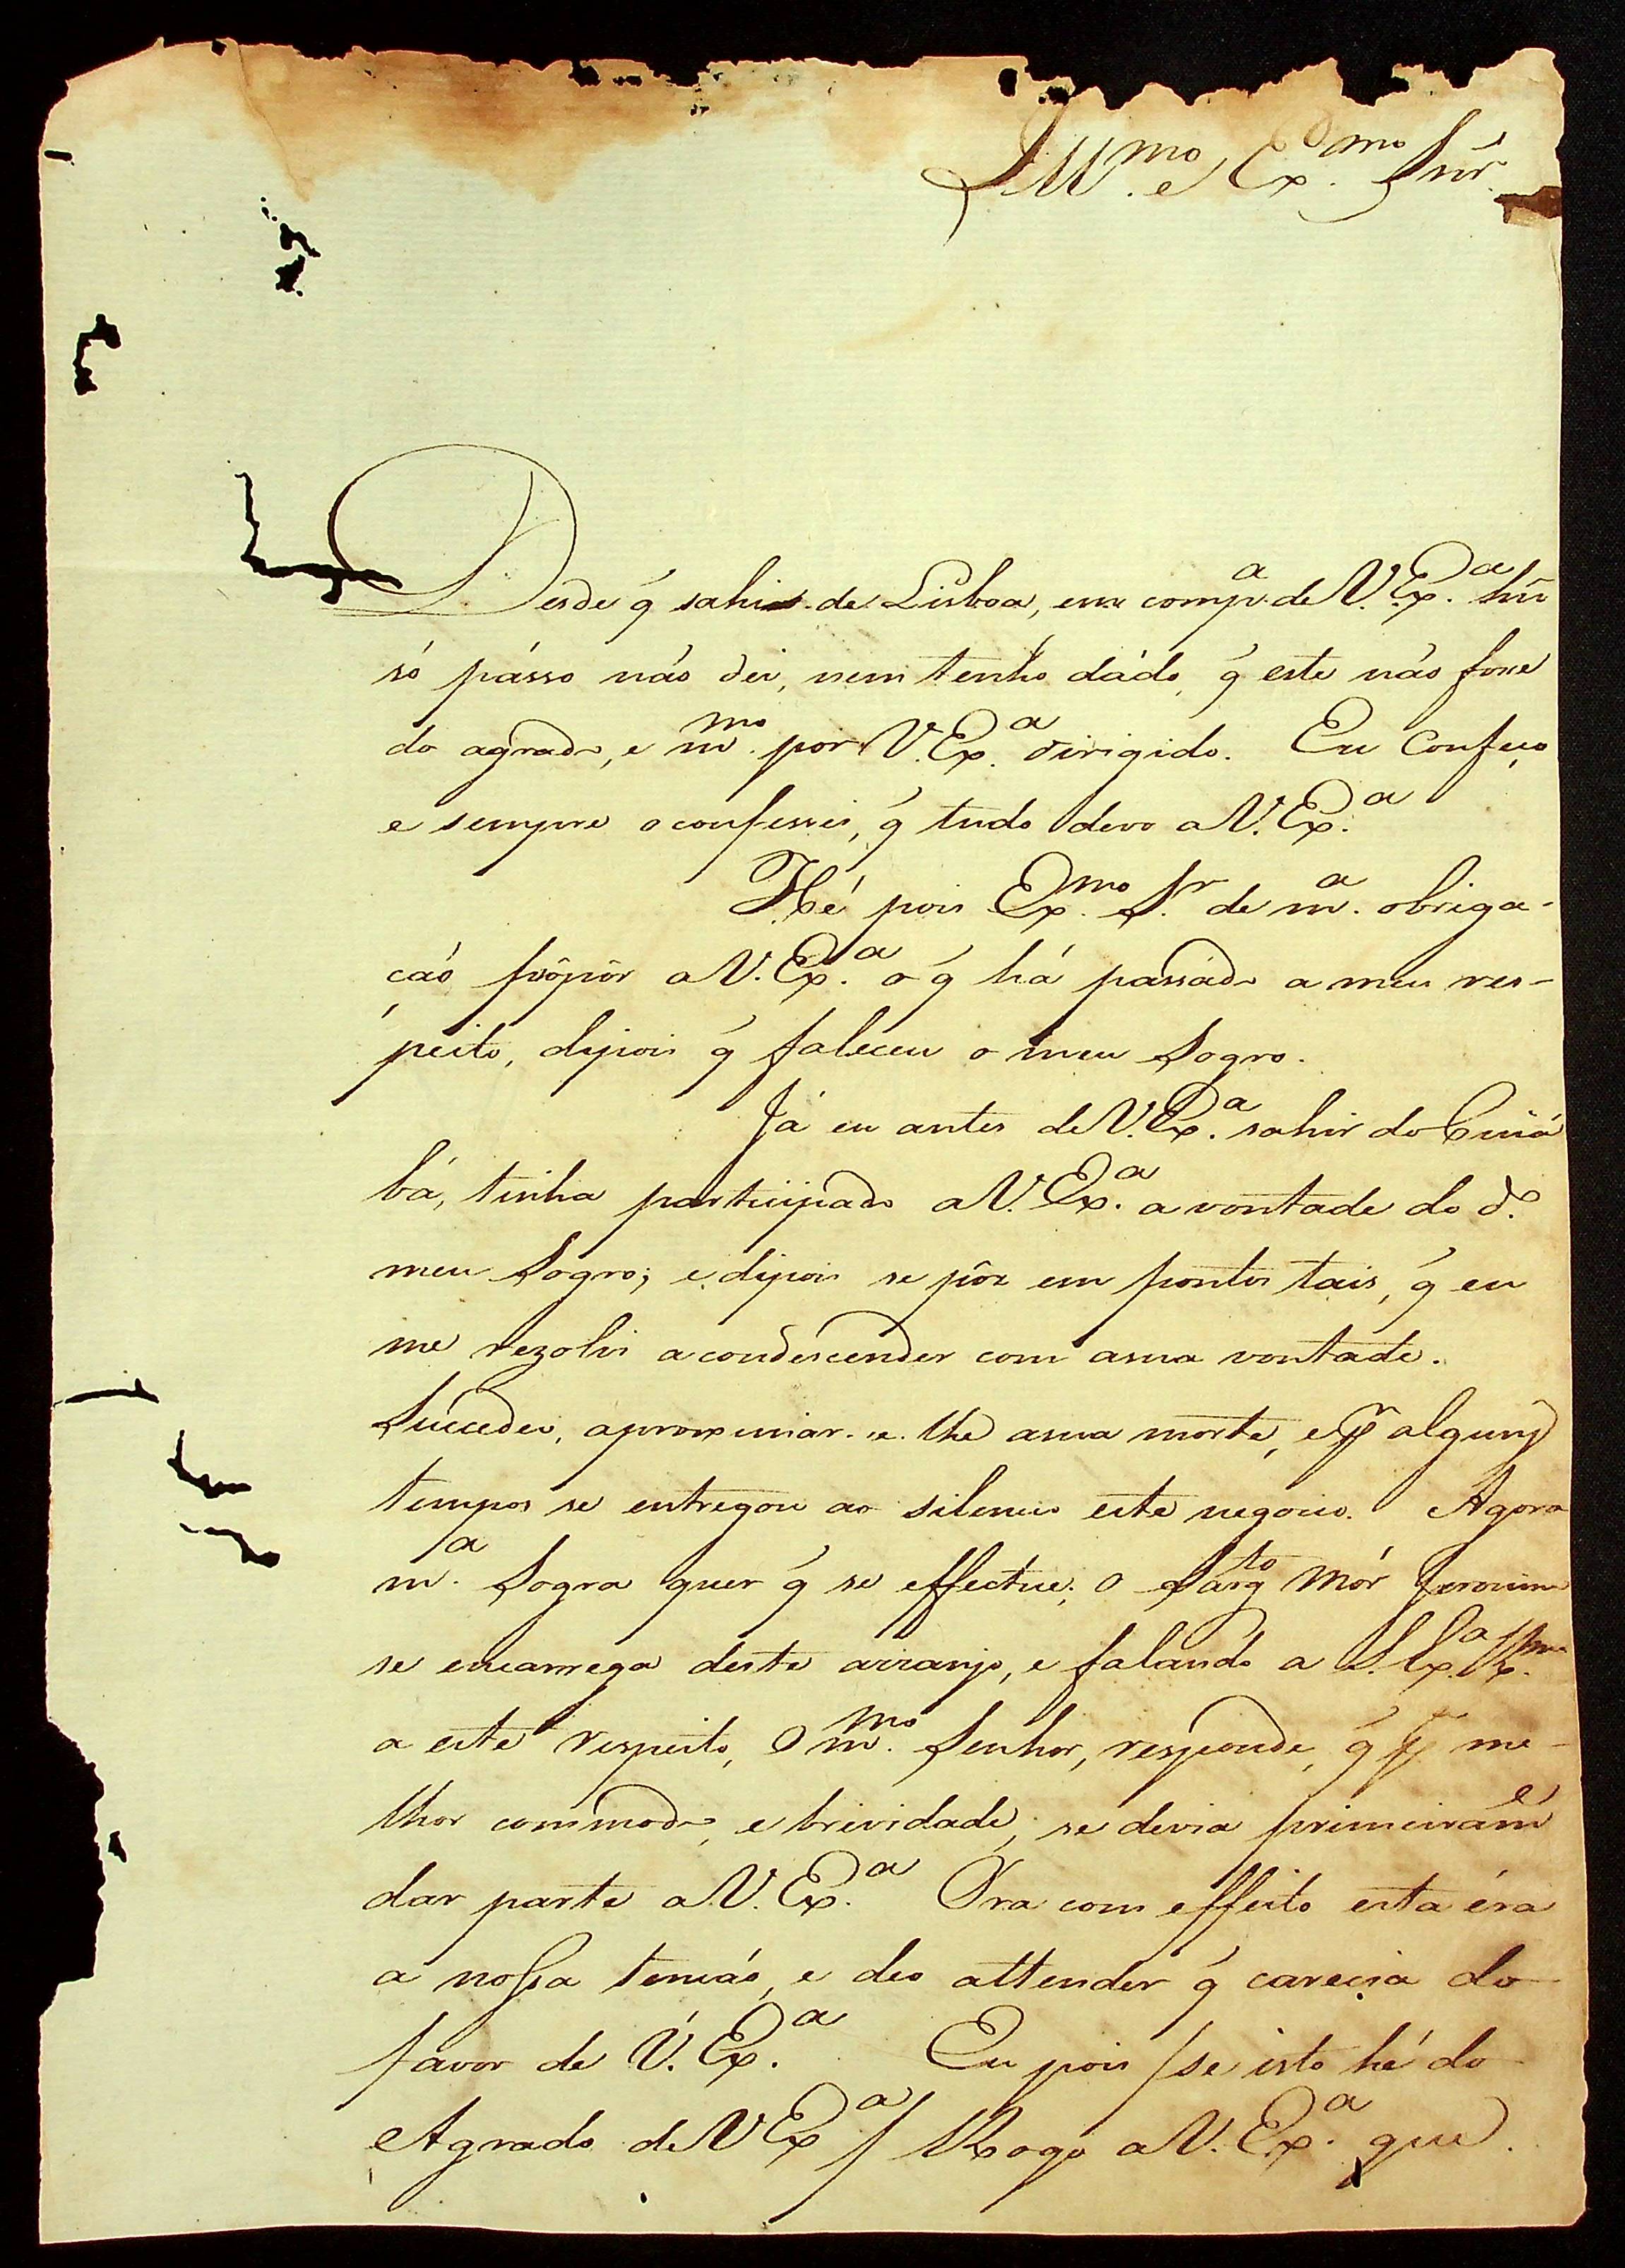 Ill.mo e Ex.mo Snr̃
Desde q̃ sahi de Lisboa, em comp.a de V. Ex.a hũ
só pásso não dei, nem tenho dádo, q̃ este não fosse
do agrado, e m.mo por V. Ex.a dirigido. Eu Confeço
e sempre o confessei, q̃ tudo devo a V. Ex.a
Hé pois Ex.mo S.r de m.a obriga-
ção propôr a V. Ex.a o q̃ há passádo a meu res-
peito, dipois q̃ faleceu o meu Sogro.
Já eu antes de V. Ex.a sahir do Cuiá
bá, tinha participado a V. Ex.a a vontade do d.o
meu Sogro; e dipois se pôz em pontos tais, q̃ eu
me rezolvi a condescender com a sua vontade.
Succedeu, aproximar-se-lhe a sua morte, e p.r alguns
tempos se entregou ao silencio este negocio. Agora
m.a Sogra quer q̃ se effectue; o Sarg.to Mór Jeronimo
se encarrega deste arranjo, e falando a S. Ex.a R.ma
a este respeito, O m.mo Senhor, responde, q̃ p.r me-
lhor commodo, e brividade, se devia primeiram.e
dar parte a V. Ex.a Óra com effeito esta éra
a nossa tenção, e deo attender q̃ carecia do
favor de V. Ex.a Eu pois /se isto hé do
Agrado de V Ex.a/ Rogo a V. Ex.a que